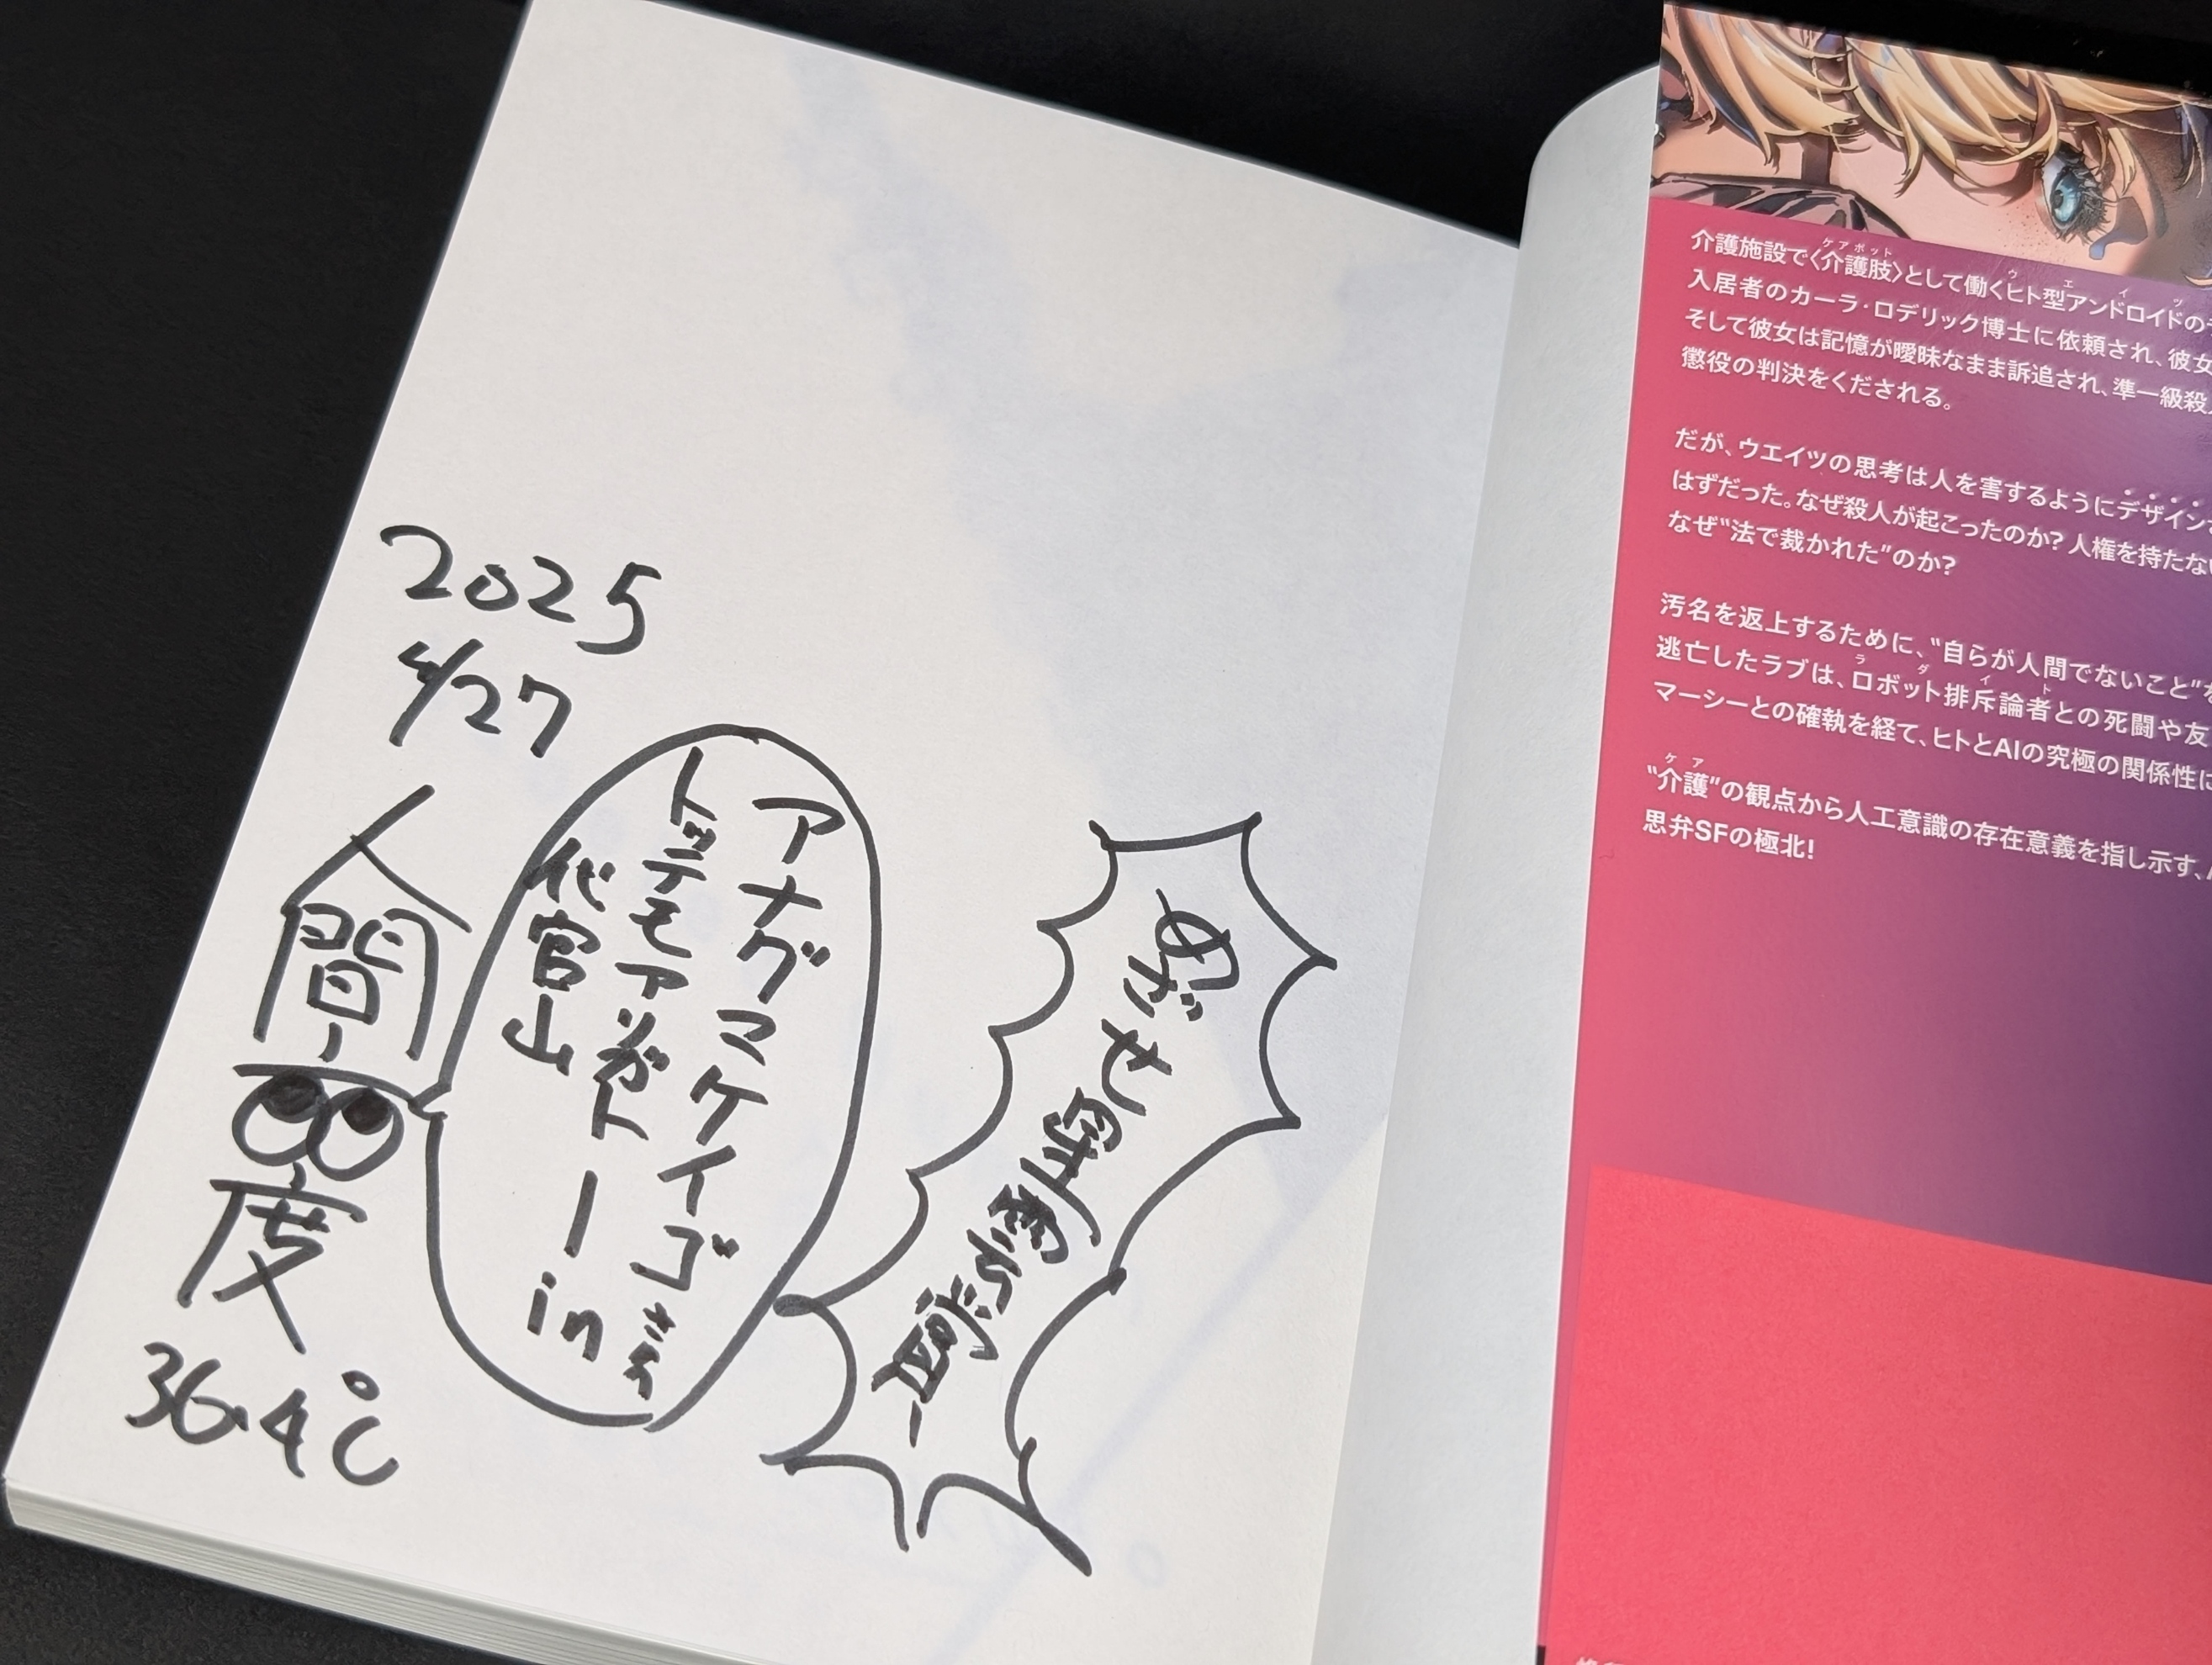 2025
4/27
めざせ
アナグマケイゴさん
トッテモアリガトー in
代官山
人間
六度
36.4℃
介護施設で〈介護肢〉として働くヒト型アンドロイドの
ケアボット
ウエイツ
入居者のカーラ・ロデリック博士に依頼され、彼女
そして彼女は記憶が曖昧なまま訴追され、準一級殺
懲役の判決をくだされる。
だが、ウエイツの思考は人を害するようにデザイン
はずだった。なぜ殺人が起こったのか？人権を持たな
なぜ“法で裁かれた”のか？
汚名を返上するために、“自らが人間でないこと”
逃亡したラブは、ロボット排斥論者との死闘や友
ラダイト
マーシーとの確執を経て、ヒトとAIの究極の関係性に
“介護”の観点から人工意識の存在意義を指し示す、
ケア
思弁SFの極北！